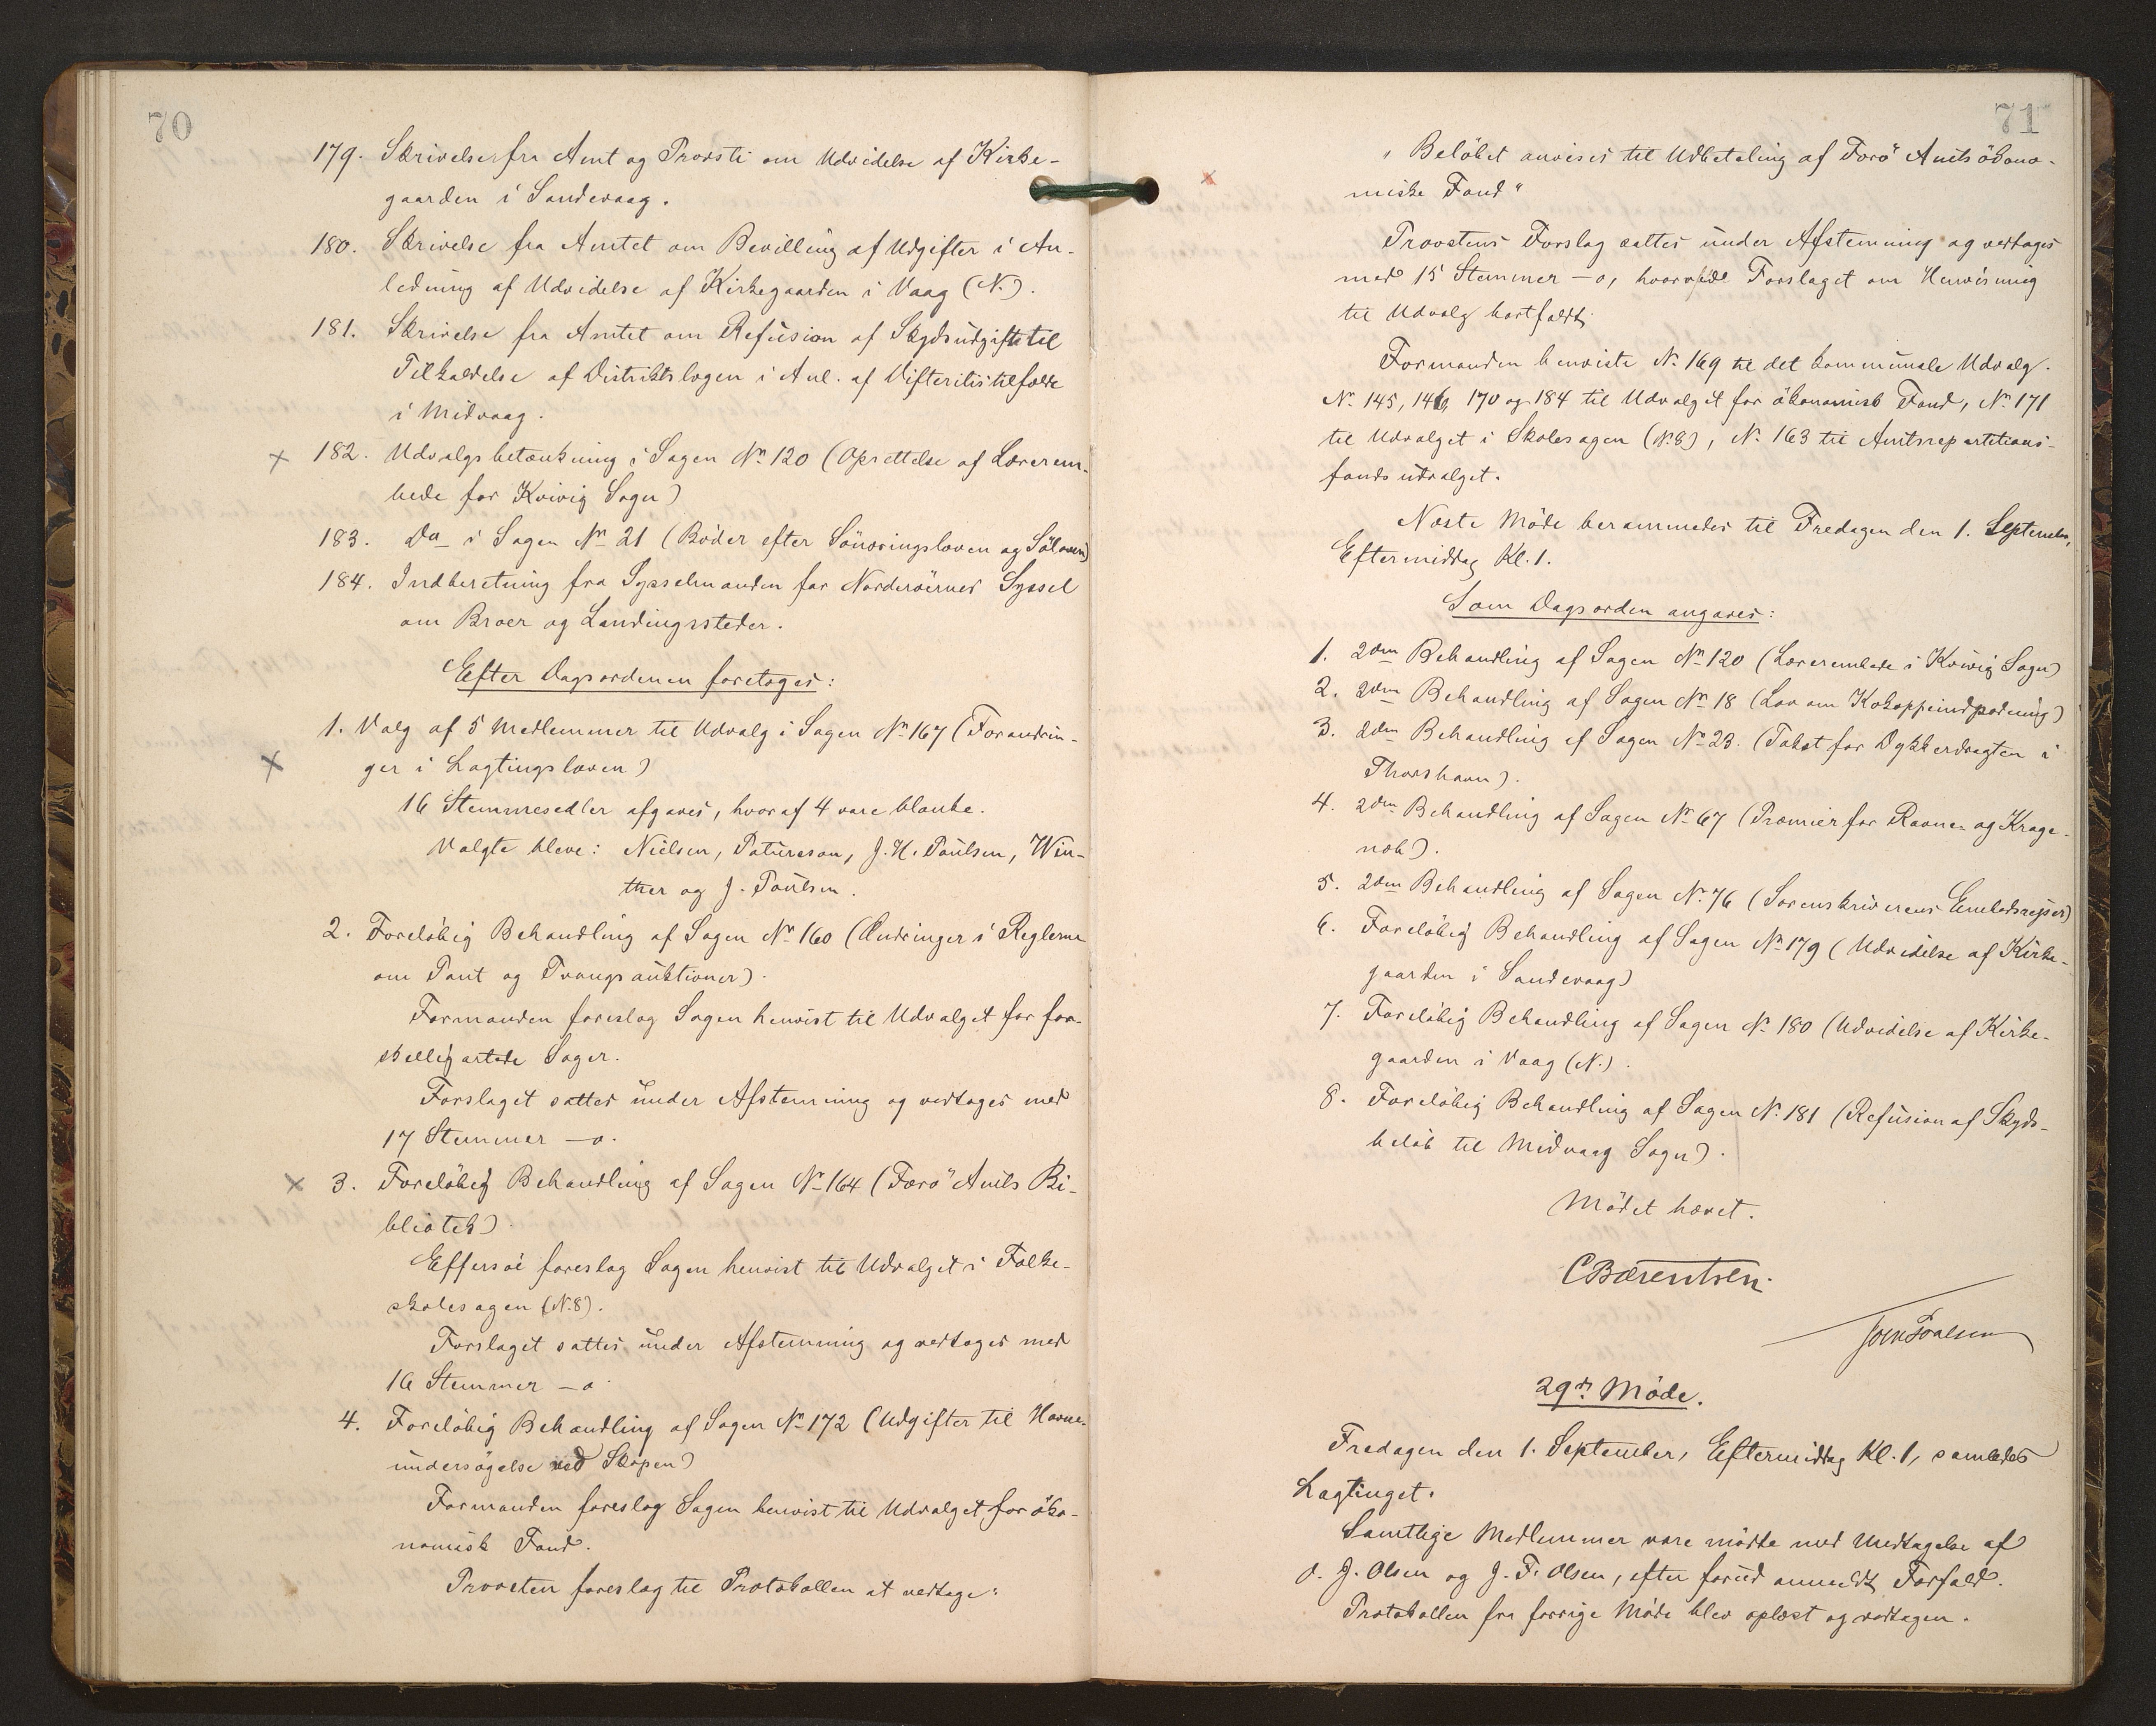 70
179. Skrivelser fra Amt og Provsti om Udvidelse af Kirke-
gaarden i Sandevaag.
180. Skrivelse fra Amtet om Bevilling af Udgifter i An-
ledning af Udvidelse af Kirkegaarden i Vaag (N.).
181. Skrivelse fra Amtet om Refusion af Skydsudgift til
Tilkaldelse af Distriktslægen i Anl. af Difteritistilfælde
i Midvaag.
182. Udvalgsbetænkning i Sagen No 120 (Oprettelse af Lærerem-
bede for Kvivig Sogn)
183. Do i Sagen No 21 (Böder efter Sönæringsloven og Söloven)
184. Indberetning fra Sysselmanden for Norderöernes Syssel
om Broer og Landingssteder.
Efter Dagsordenen foretoges:
1. Valg af 5 Medlemmer til Udvalg i Sagen No 167 (Forandrin-
ger i Lagtingsloven)
16 Stemmesedler afgaves, hvoraf 4 vare blanke.
Valgte bleve: Nielsen, Patursson, J. H. Poulsen, Win-
ther og J. Poulsen.
2. Foreløbig Behandling af Sagen No 160 (Ændringer i Reglerne
om Pant og Tvangsauktioner).
Formanden foreslog Sagen henvist til Udvalget for for-
skelligartede Sager.
Forslaget sattes under Afstemning og vedtoges med
17 Stemmer – o.
3. Foreløbig Behandling af Sagen No 164 (Færö Amts Bi-
bliotek)
Effersöe foreslog Sagen henvist til Udvalget i Folke-
skolesagen (N. 8).
Forslaget sattes under Afstemning og vedtoges med
16 Stemmer – o
4. Foreløbig Behandling af Sagen No 172 (Udgifter til Havne-
undersögelse ved Skopen)
Formanden foreslog Sagen henvist til Udvalget for öko-
nomisk Fond.
Provsten foreslog til Protokollen at vedtage:
71
"Belöbet anvises til Udbetaling af Færö Amts ökono-
miske Fond"
Provstens Forslag sattes under Afstemning og vedtoges
med 15 Stemmer – o, hvorved Forslaget om Henvisning
til Udvalg bortfaldt.
Formanden henviste No. 169 til det kommunale Udvalg.
No. 145, 146, 170 og 184 til Udvalget for ökonomisk Fond, No. 171
til Udvalget i Skolesagen (No 8), No. 163 til Amtsrepartitions-
fondsudvalget.
Næste Möde berammedes til Fredagen den 1. September,
Eftermiddag Kl. 1.
Som Dagsorden angaves:
1. 2den Behandling af Sagen No 120 (Lærerembede i Kvivig Sogn)
2. 2den Behandling af Sagen No 18 (Lov om Kokoppeindpodning)
3. 2den Behandling af Sagen No 23. (Takst for Dykkerdragten i
Thorshavn).
4. 2den Behandling af Sagen No 67 (Præmier for Ravne- og Krage-
næb).
5. 2den Behandling af Sagen No. 76 (Sorenskriverens Embedsrejser)
6. Foreløbig Behandling af Sagen No 179 (Udvidelse af Kirke-
gaarden i Sandevaag)
7. Foreløbig Behandling af Sagen No. 180 (Udvidelse af Kirke-
gaarden i Vaag (N.).
8. Foreløbig Behandling af Sagen No. 181 (Refusion af Skyds-
beløb til Midvaag Sogn).
Mödet hævet.
CBærentsen.
29de Möde.
Fredagen den 1. September, Eftermiddag Kl. 1, samledes
Lagtinget.
Samtlige Medlemmer vare mödte med Undtagelse af
O. J. Olsen og J. F. Olsen, efter forud anmeldt Forfald.
Protokollen fra forrige Möde blev oplæst og vedtagen.